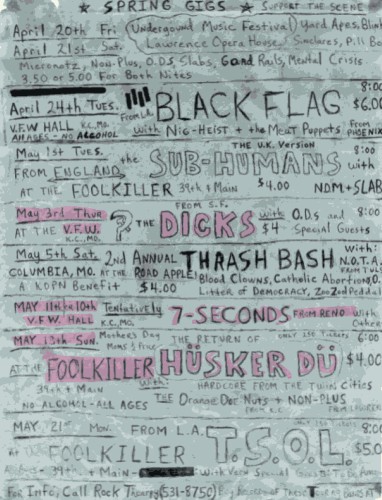 ★ SPRING GIGS ★ SUPPORT THE SCENE
April 20th Fri (Underground Music Festival) Yard Apes, Blin
April 21st Sat. Lawrence Opera House Sinclares, Pill Be
Micronotz, Non-Plus, O.D.S, Slabs, Gand Rails, Mental Crisis
3.50 or 5.00 For Both Nites
8:00
April 24th TUES. From L.A. BLACK FLAG $6.00
V.F.W HALL K.C., MO. with Nig-Heist + the Meat Puppets From PHOENIX
ALL AGES - NO ALCOHOL
May 1st TUES. THE U.K. Version 8:00
FROM ENGLAND, the SUB-HUMANS with
AT THE FOOLKILLER 39th + Main $4.00 NDM+SLAB
FROM S.F.
May 3rd Thur ? THE DICKS with O.D.s and 8:00
AT THE V.F.W. K.C., MO. $4 Special Guests
May 5th Sat. 2nd ANNUAL THRASH BASH With:
COLUMBIA, MO. AT THE ROAD APPLE! N.O.T.A. FROM TULS
A KOPN Benefit $4.00 Blood Clowns, Catholic Abortion,
Litter of DEMOCRACY, Zoo Zod
MAY 11th or 10th Tentatively 7-SECONDS FROM RENO With
V.F.W. HALL K.C., MO. Other
MAY 13th Sun. Mother's Day THE RETURN OF ONLY 250 TICKETS 6:00
Moms $ Free
AT THE FOOLKILLER HÜSKER DÜ $4.00
39th + Main With: HARDCORE FROM THE Twin Cities
NO ALCOHOL - ALL AGES THE Orange Donuts + NON-PLUS
FROM K.C.
MAY 21st Mon. FROM L.A. T.S.O.L. 8:00
AT FOOLKILLER $5.0
39th + Main - with Very Special Guests To Be
For Info; Call Rock Therapy (531-8750)